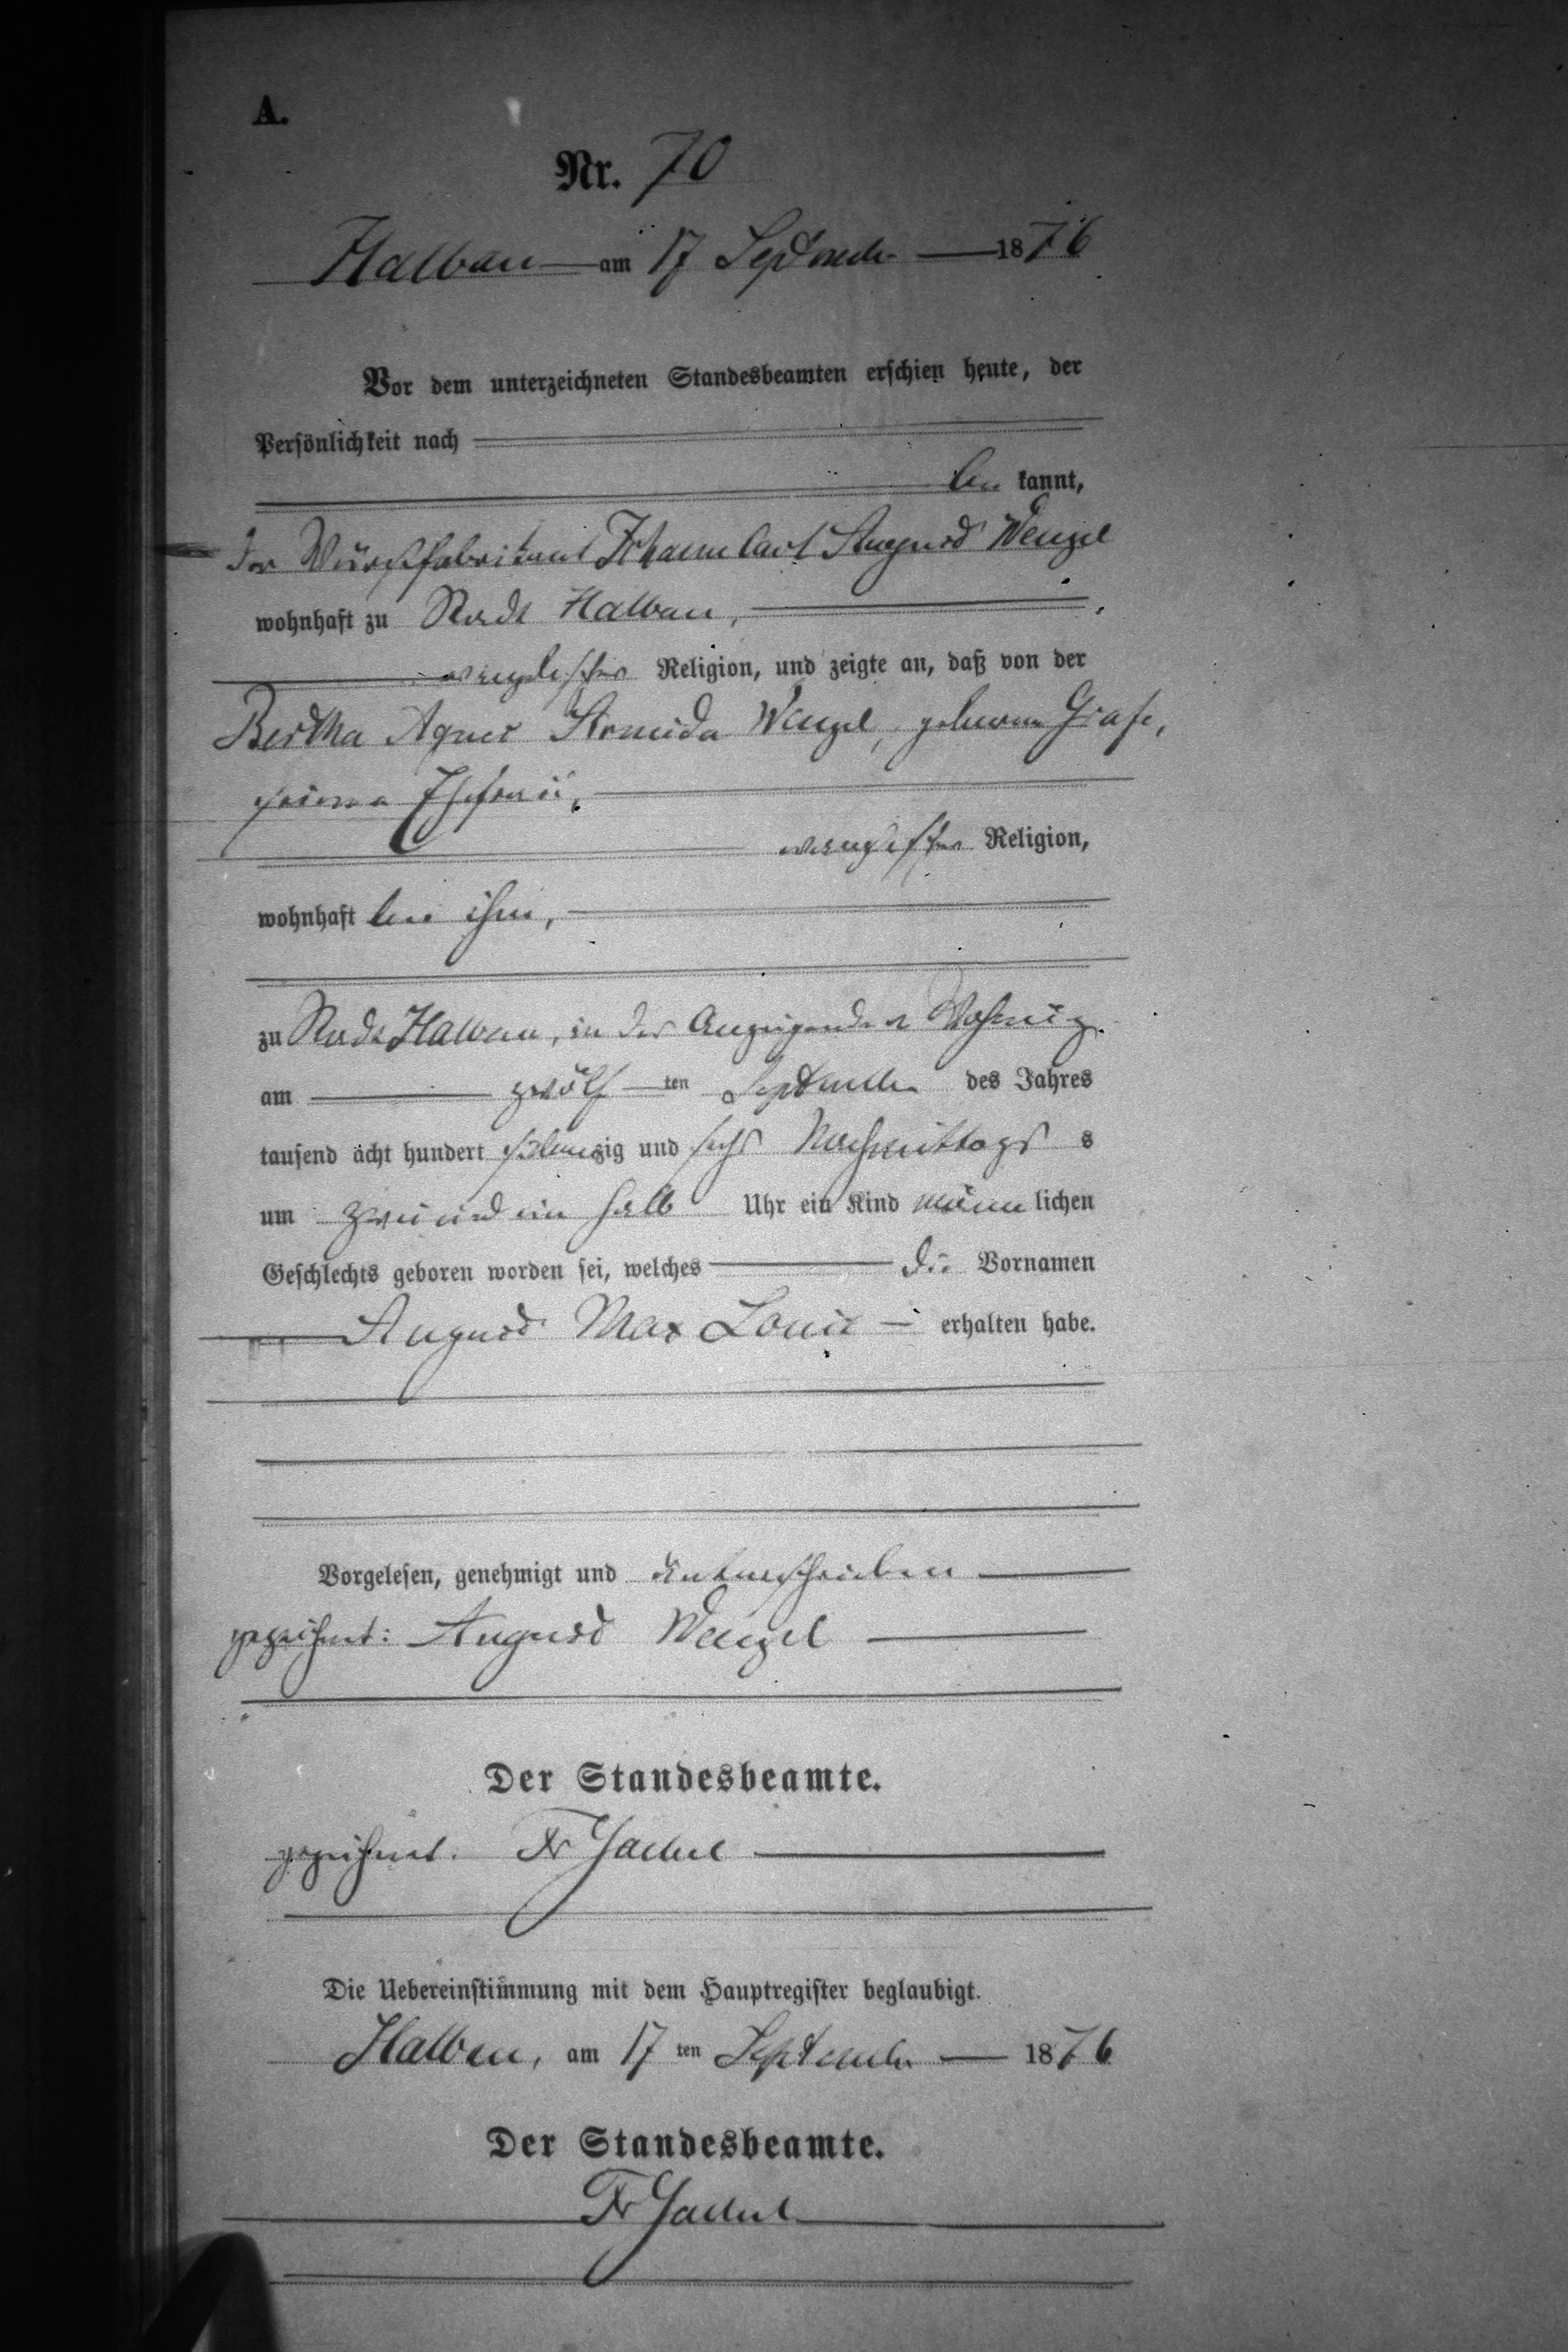 A.
Nr. 70
Halbau am 17 September 1876
Vor dem unterzeichneten Standesbeamten erschien heute, der
Persönlichkeit nach
be kannt,
der Wurstfabrikant Johann Carl August Wenzel
wohnhaft zu Stadt Halbau,
evangelischer Religion, und zeigte an, daß von der
Bertha Agnes Wenzel, geborene Grafe,
seiner Ehefrau,
evangelischer Religion,
wohnhaft bei ihm,
zu Stadt Halbau, in der Anzeigenden Wohnung
am zwölf ten September des Jahres
tausend acht hundert siebenzig und sechs Nachmittags s
um zwei und ein halb Uhr ein Kind männ lichen
Geschlechts geboren worden sei, welches die Vornamen
August Max Louis erhalten habe.
Vorgelesen, genehmigt und unterschrieben
gezeichnet: August Wenzel
Der Standesbeamte.
gezeichnet. Fr
Die Uebereinstimmung mit dem Hauptregister beglaubigt.
Halbau, am 17 ten September 1876
Der Standesbeamte.
Fr